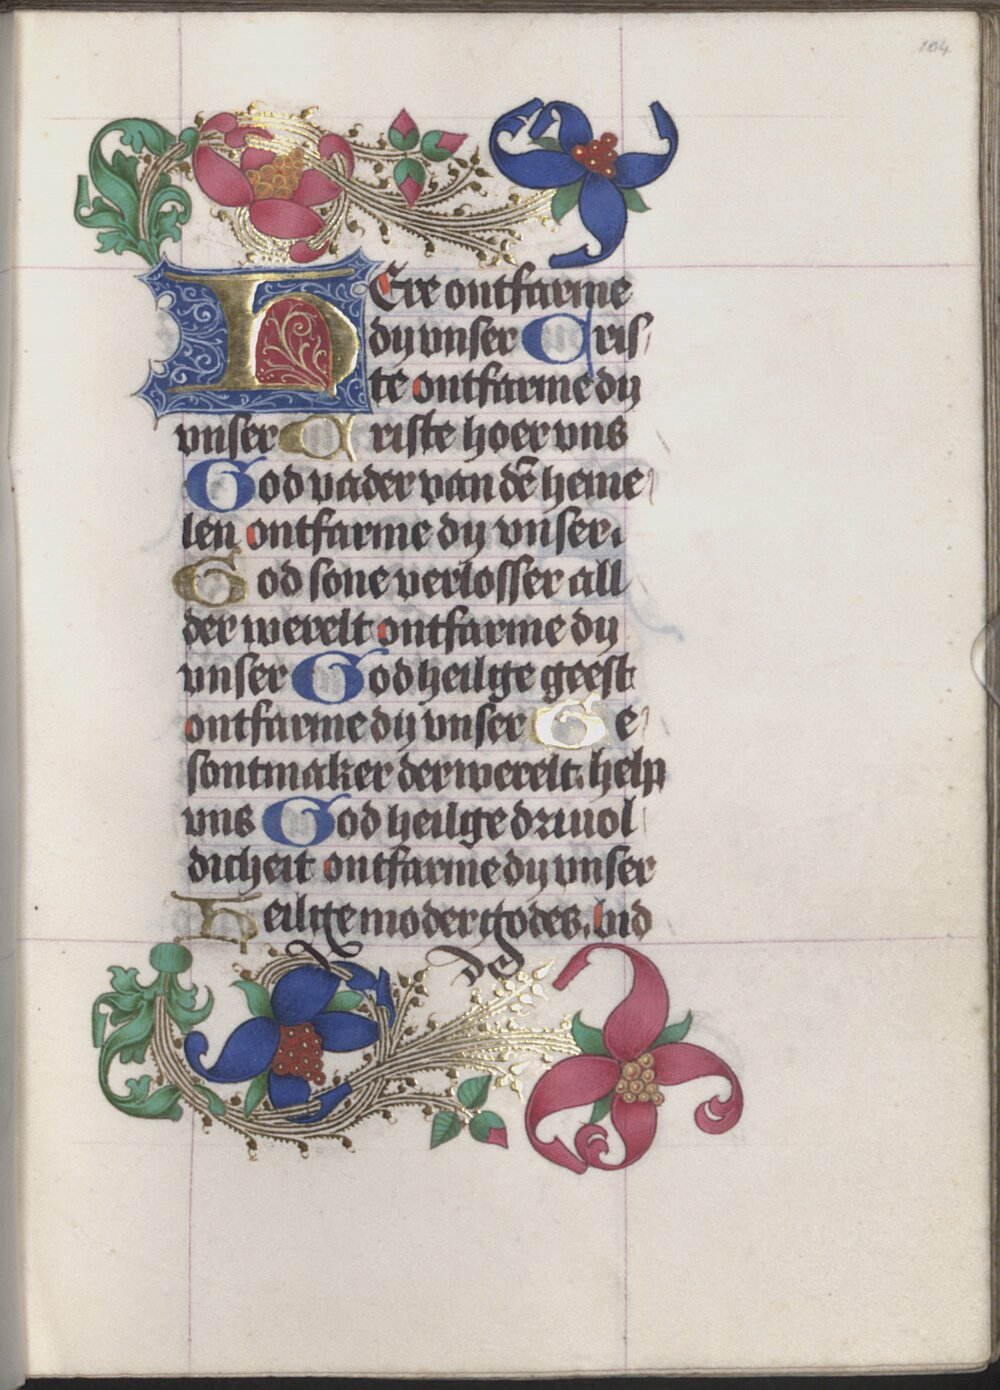 104
HEre ontfarme
dy vnser Cris
te ontfarme dy
vnser Criste hoer vns
God vader van dē heme
len ontfarme dy vnser.
God sone verlosser all
der werelt ontfarme dy
vnser God heilge geest
ontfarme dy vnser Ge
sontmaker der werelt. help
vns God heilge driuol
dicheit ontfarme dy vnser
Heilige moder godes. bid